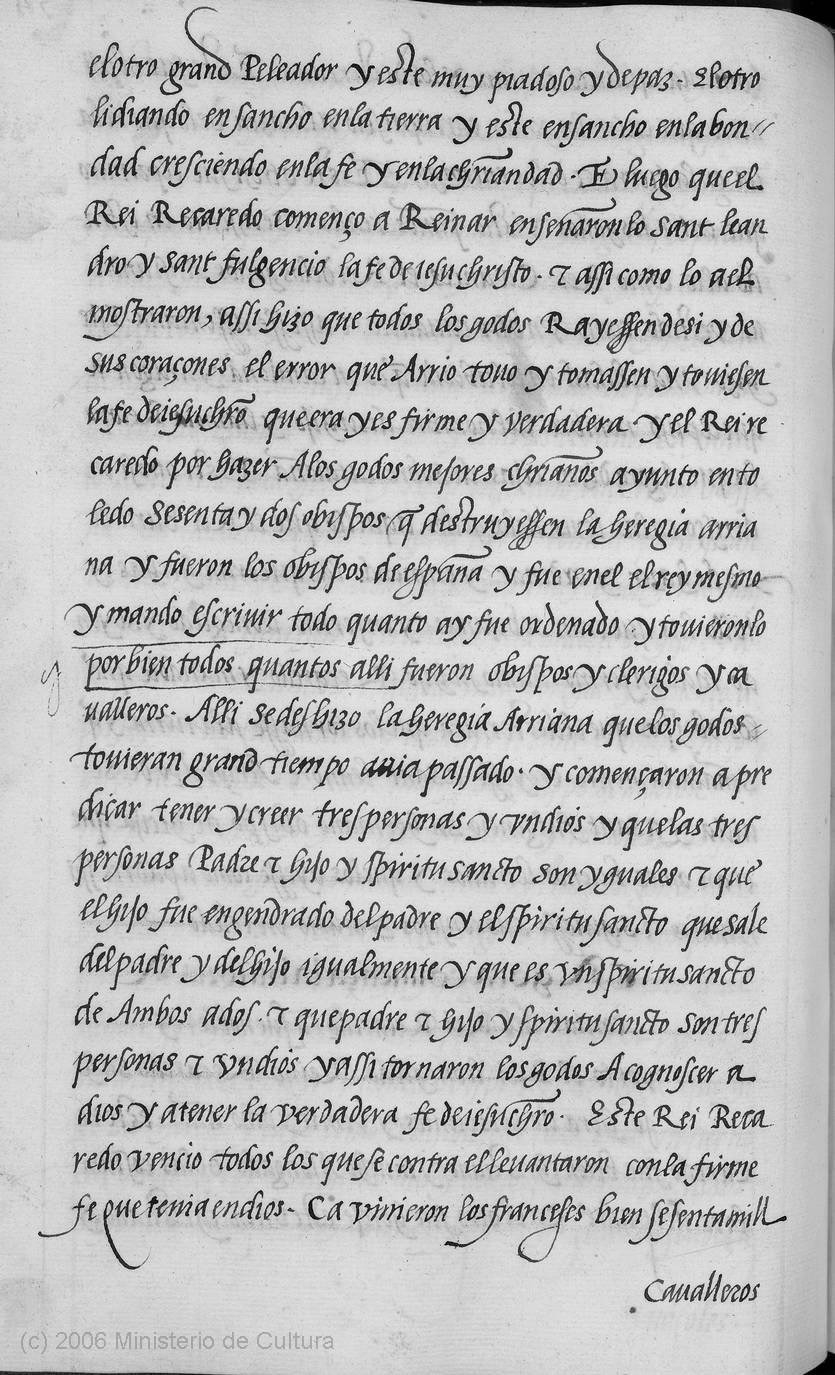 el otro grand Peleador y este muy piadoso y de paz. El otro
lidiando ensancho en la tierra y este ensancho en la bon=
dad cresciendo en la fe y en la chr̃iandad. E luego que el
Rei Recaredo començo a Reinar enseñaronlo sant lean
dro y sant fulgencio la fe de iesuchristo. & assi como lo a el
mostraron, assi hizo que todos los godos Rayessen de si y de
sus coraçones el error que Arrio tovo y tomassen y toviesen
la fe de iesuchr̃o que era y es firme y verdadera y el Rei re
caredo por hazer A los godos mejores chrianõs ayunto en to
ledo sesenta y dos obispos q̃ destruyessen la heregia arria
na y fueron los obispos de españa y fue en el el rey mesmo
y mando escrivir todo quanto ay fue ordenado y tovieronlo
por bien todos quantos alli fueron obispos y clerigos y ca
valleros. Alli se deshizo la heregia Arriana que los godos=
tovieran grand tiempo avia passado. y començaron a pre
dicar tener y creer tres personas y vn dios y que las tres
personas Padre & hijo y spiritu sancto son yguales & que
el hijo fue engendrado del padre y el spiritu sancto que sale
del padre y del hijo igualmente y que es vn spiritu sancto
de Ambos ados. & que padre & hijo y spiritu sancto son tres
personas & vn dios y assi tornaron los godos A cognoscer a
dios y a tener la verdadera fe de iesuchr̃o. Este Rei Reca
redo vencio todos los que se contra el levantaron con la firme
fe que tenia en dios. Ca vinieron los franceses bien sesenta mill
Cavalleros
(c) 2006 Ministerio de Cultura